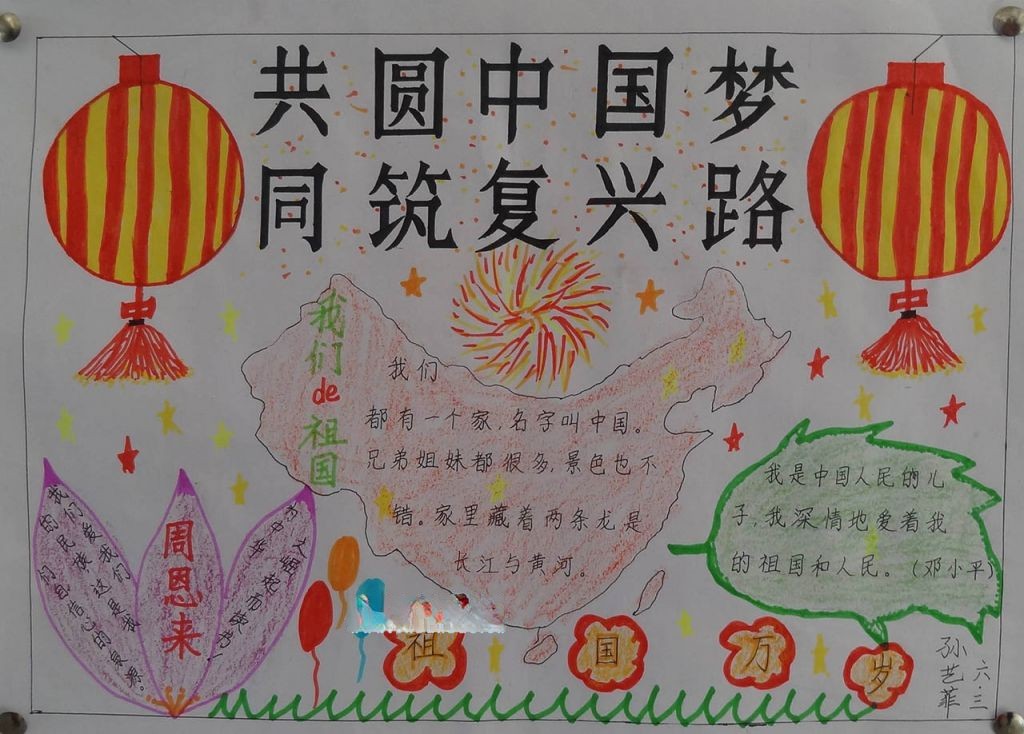 共圆中国梦
同筑复兴路
我们de祖国
我们
都有一个家,名字叫中国。
兄弟姐妹都很多,景色也不
错。家里藏着两条龙是
长江与黄河。
我们爱我们
的民族,这是我
们自信心的泉源。
周恩来
为中华
之崛起而读书!
我是中国人民的儿
子,我深情地爱着我
的祖国和人民。(邓小平)
祖国万岁
六.三
孙艺菲